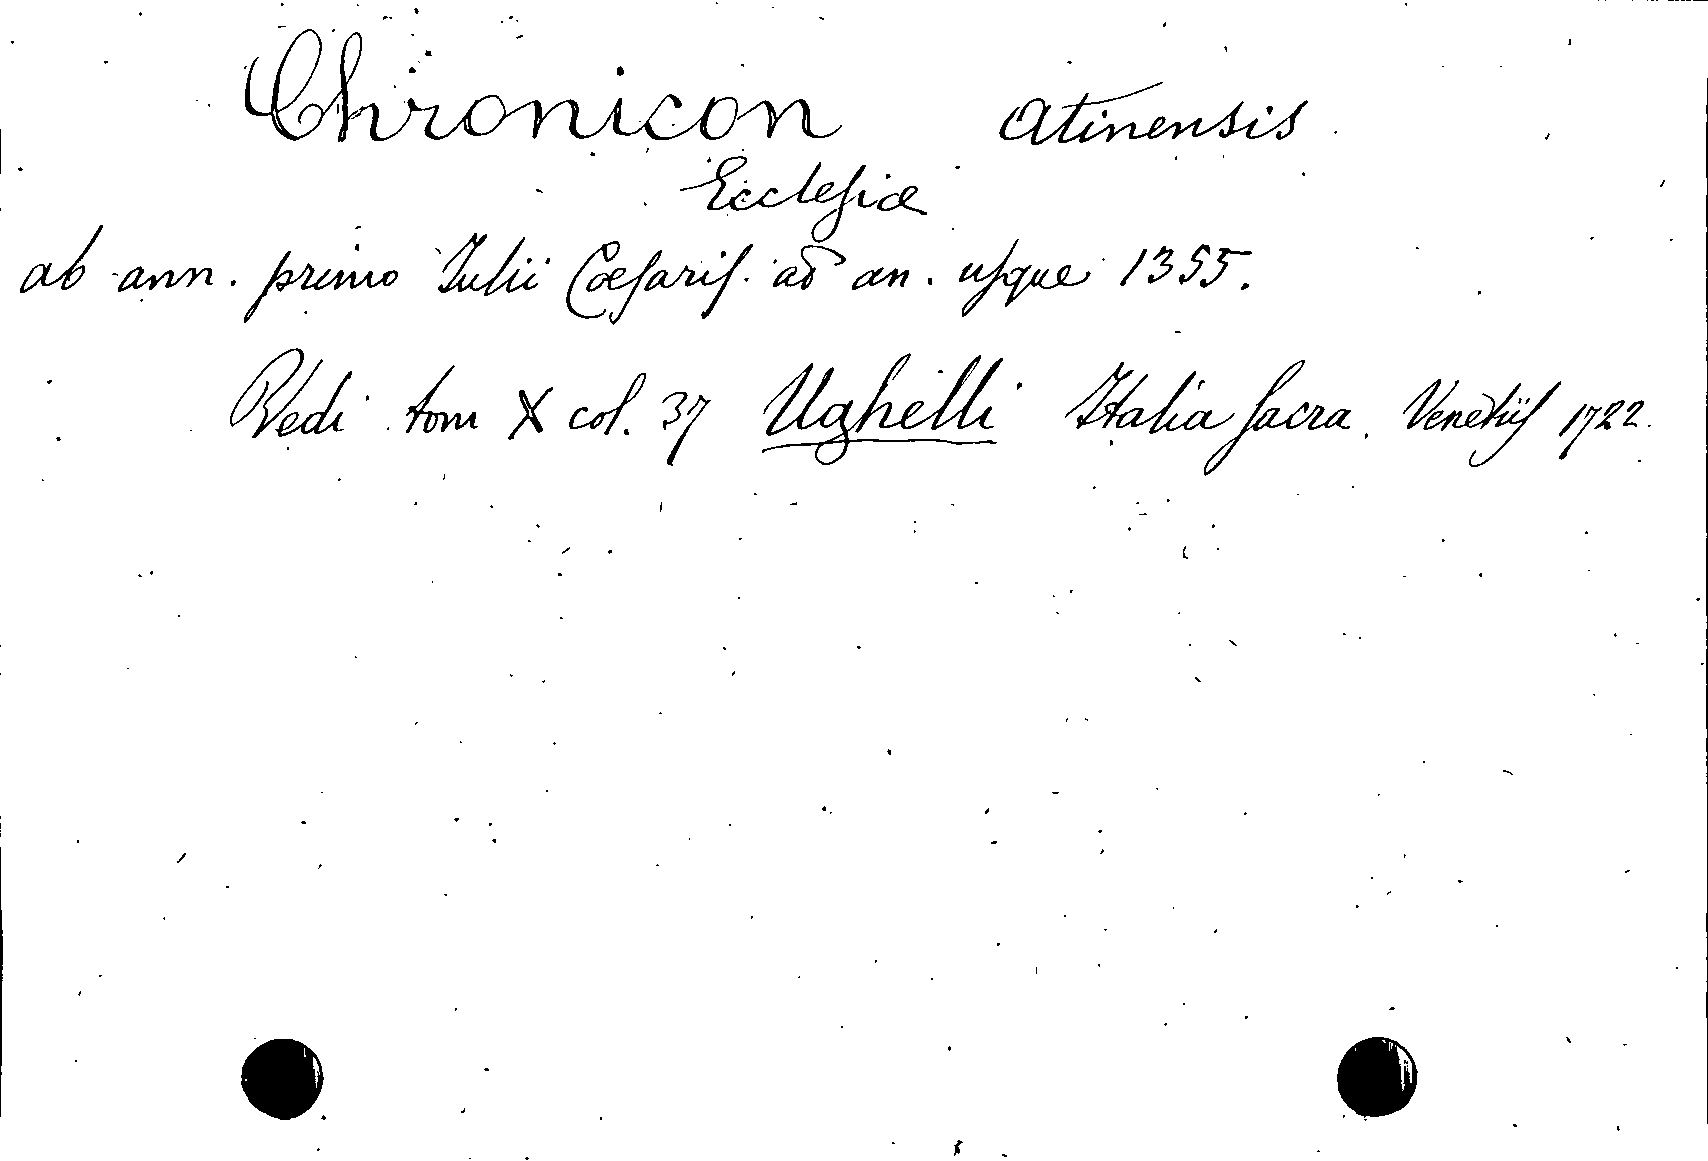 Chronicon Atinensis
Eccleſiæ
ab ann. primo Iulii Cæſariſ ad an. uſque 1355.
Vedi tom X col. 37 Ughelli Italia ſacra. Venetiiſ 1722.